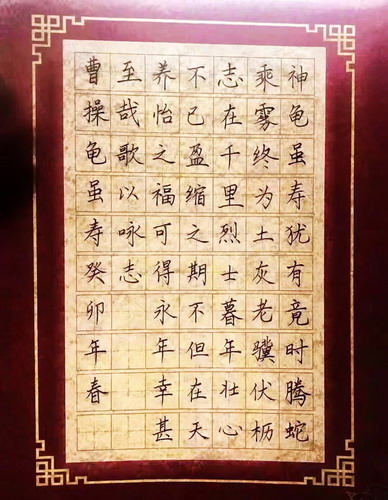 神龟虽寿犹有竟时腾蛇
乘雾终为土灰老骥伏枥
志在千里烈士暮年壮心
不已盈缩之期不但在天
养怡之福可得永年幸甚
至哉歌以咏志
曹操龟虽寿癸卯年春